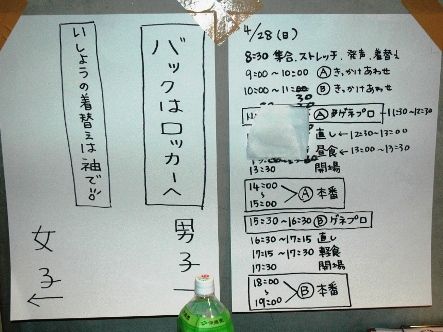 4/28(日)
8:30 集合、ストレッチ、発声、着替え
9:00~10:00 Ⓐ きっかけあわせ
10:00~11:00 Ⓑ きっかけあわせ
30
Ⓐ ゲネプロ 11:30~12:30
直し ← 12:30~13:00
昼食 ← 13:00~13:30
13:30 開場
14:00
~
15:00 > Ⓐ 本番
15:30~16:30 Ⓑ ゲネプロ
16:30~17:15 直し
17:15~17:30 軽食
17:30 開場
18:00
~
19:00 > Ⓑ 本番
バックはロッカーへ
いしょうの着替えは袖で!!
男子
女子
←